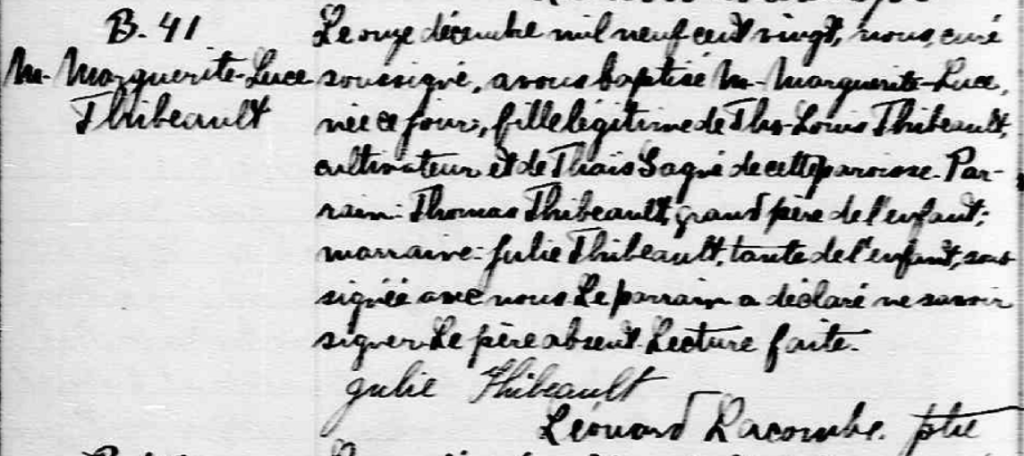 B. 41
M. Marguerite-Luce
Thibeault
Le onze décembre mil neuf cent vingt, nous, curé
soussigné, avons baptisé M. Marguerite-Luce,
née ce jour, fille légitime de Ths-Louis Thibeault,
cultivateur et de Thaïs de cette paroisse. Par-
rain: Thomas Thibeault, grand père de l'enfant;
marraine: Julie Thibeault, tante de l'enfant, sous-
signée avec nous. Le parrain a déclaré ne savoir
signer. Le père absent. Lecture faite.
Julie Thibeault
Léonard Lacombe. ptre